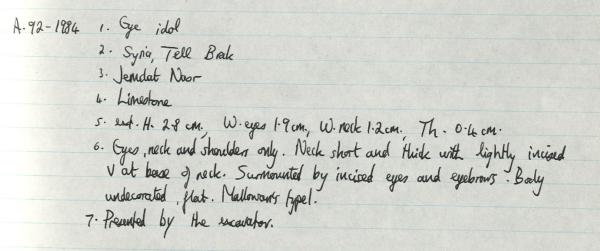 A.92-1984 1. Eye idol
2. Syria, Tell Brak
3. Jemdat Nasr
4. Limestone
5. ext. H. 2.8 cm, W. eyes 1.9 cm, W. neck 1.2 cm, Th. 0.4 cm.
6. Eyes, neck and shoulders only. Neck short and thick with lightly incised
V at base of neck. Surmounted by incised eyes and eyebrows. Body
undecorated, flat. Mallowan's type I.
7. Presented by the excavator.